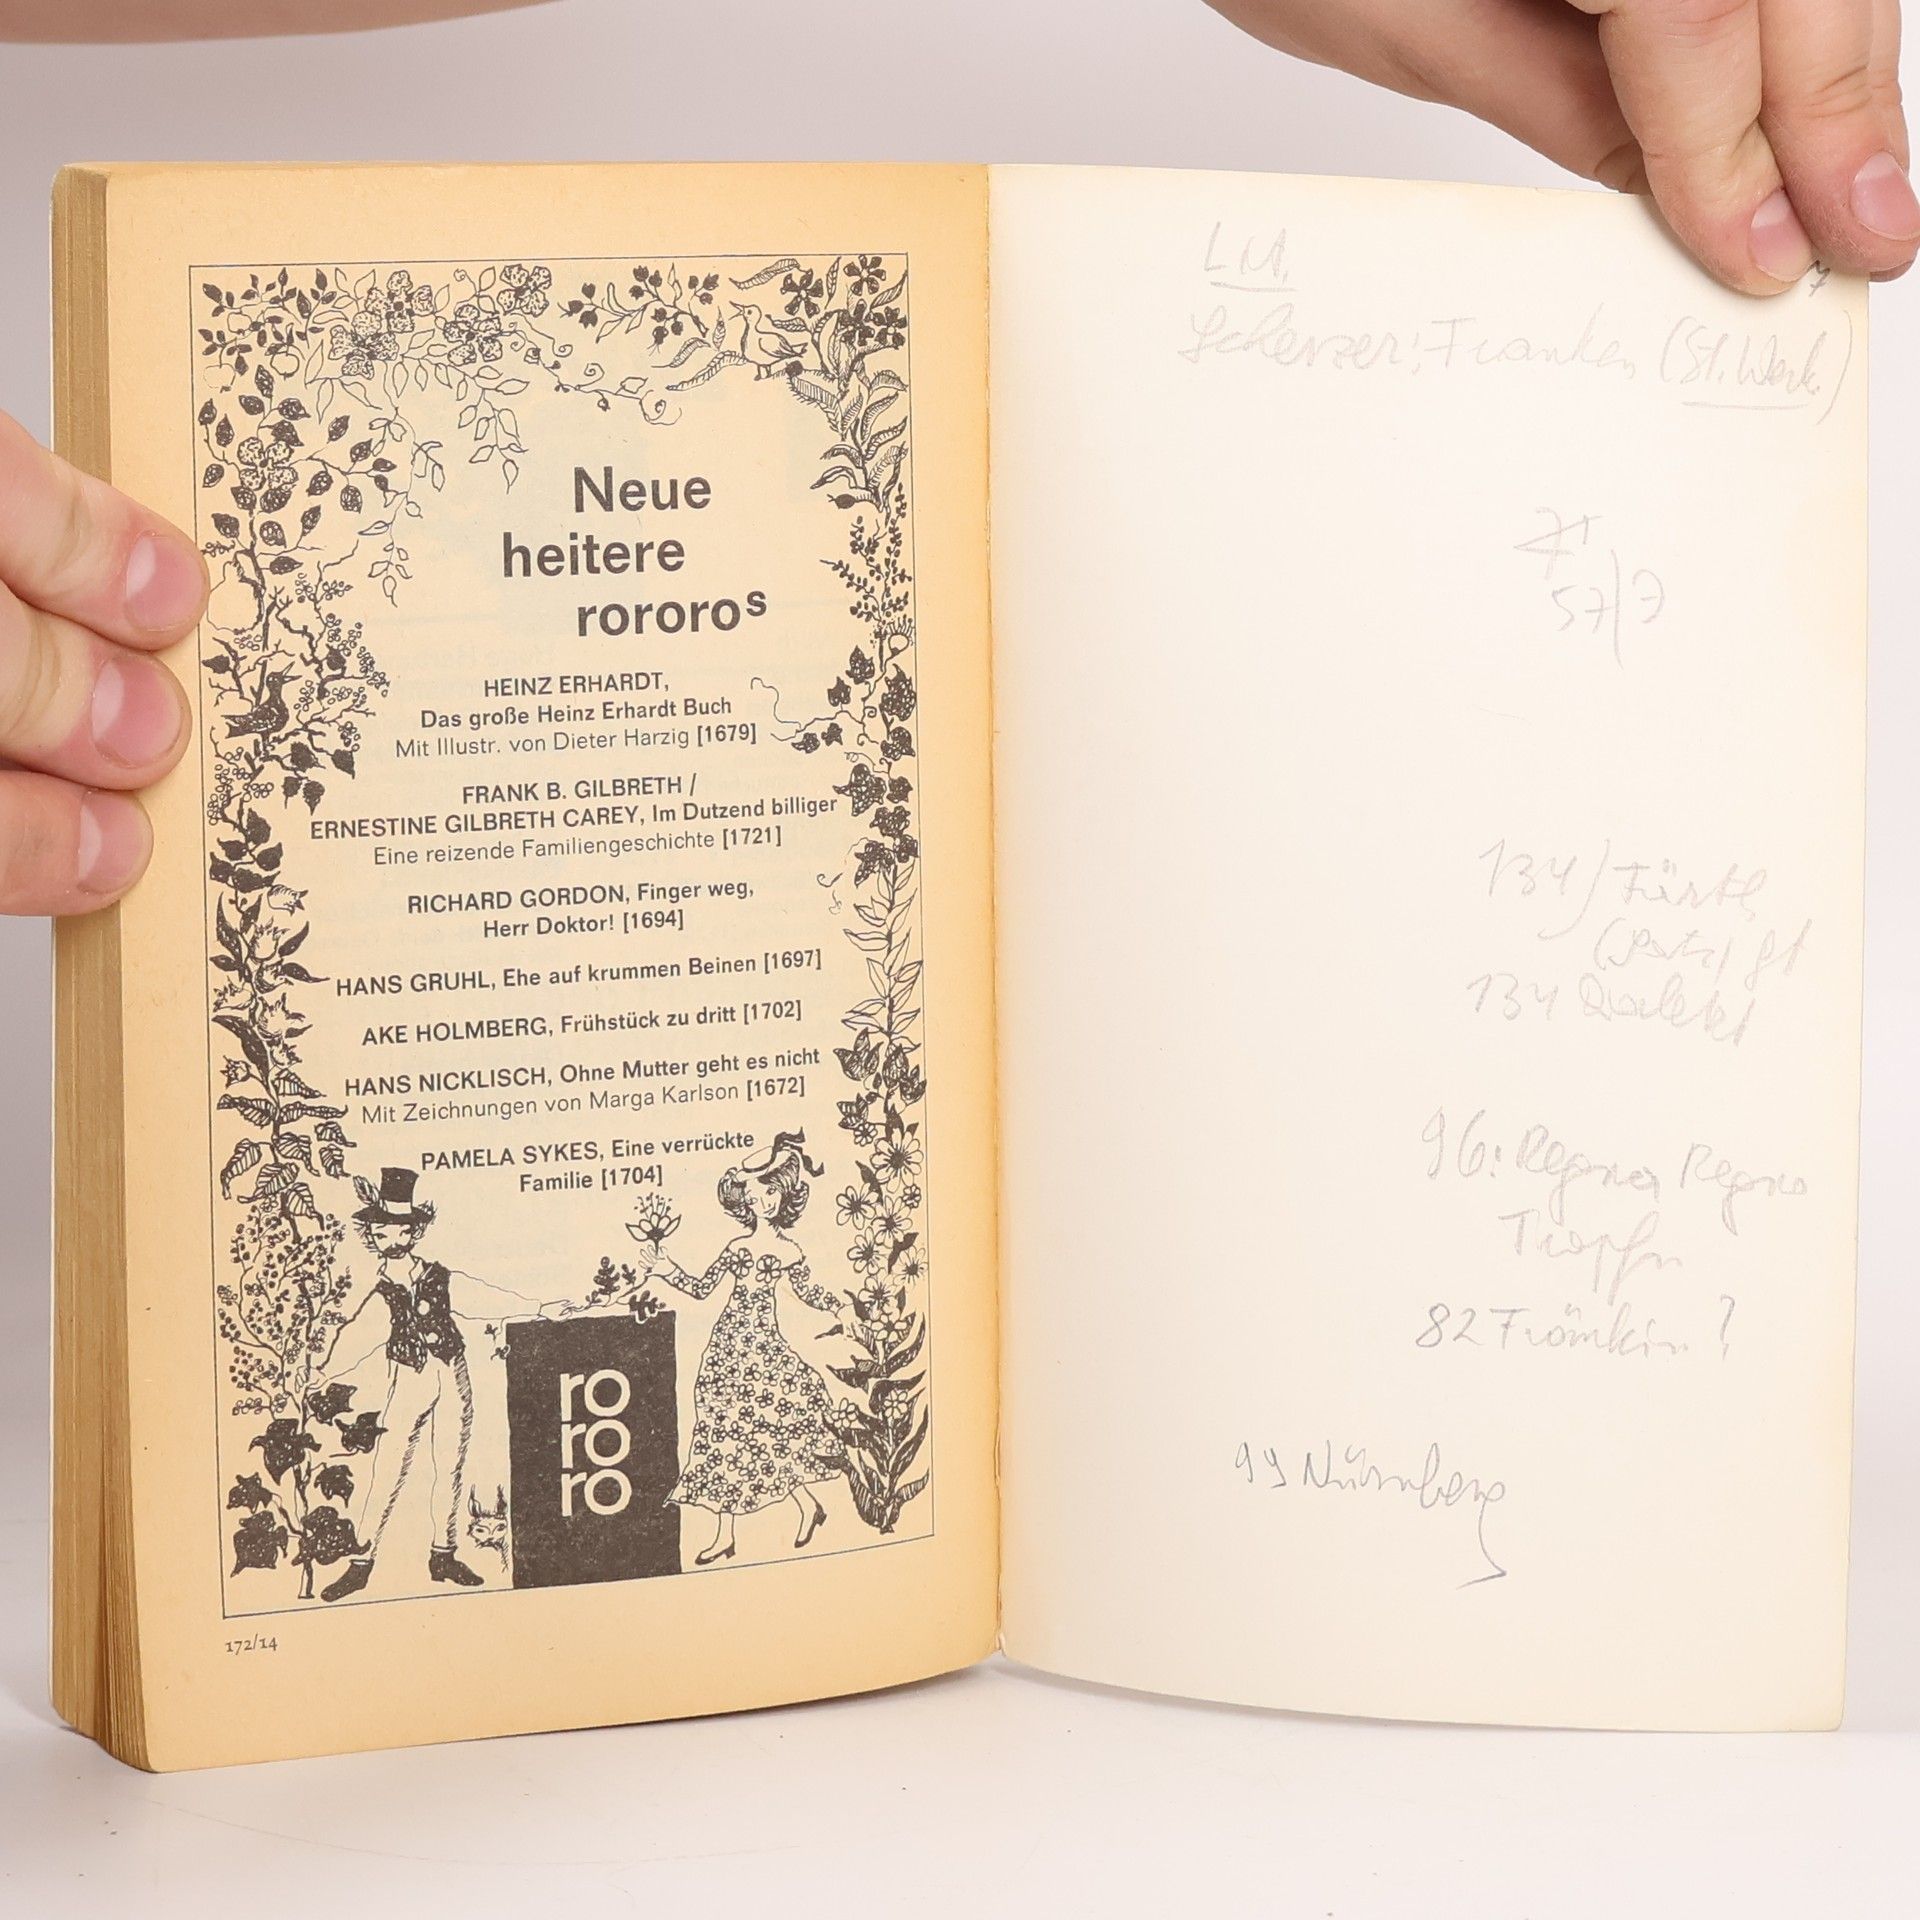 Neue
heitere
rororos
HEINZ ERHARDT,
Das große Heinz Erhardt Buch
Mit Illustr. von Dieter Harzig [1679]
FRANK B. GILBRETH /
ERNESTINE GILBRETH CAREY, Im Dutzend billiger
Eine reizende Familiengeschichte [1721]
RICHARD GORDON, Finger weg,
Herr Doktor! [1694]
HANS GRUHL, Ehe auf krummen Beinen [1697]
AKE HOLMBERG, Frühstück zu dritt [1702]
HANS NICKLISCH, Ohne Mutter geht es nicht
Mit Zeichnungen von Marga Karlson [1672]
PAMELA SYKES, Eine verrückte
Familie [1704]
ro
ro
ro
172/14
7
LM.
Scherzer: Franken (St. Werk.)
57/7
134) Fürth
134 Dialekt
96:
Tropfen
82 Fränkin?
99 Nürnberg